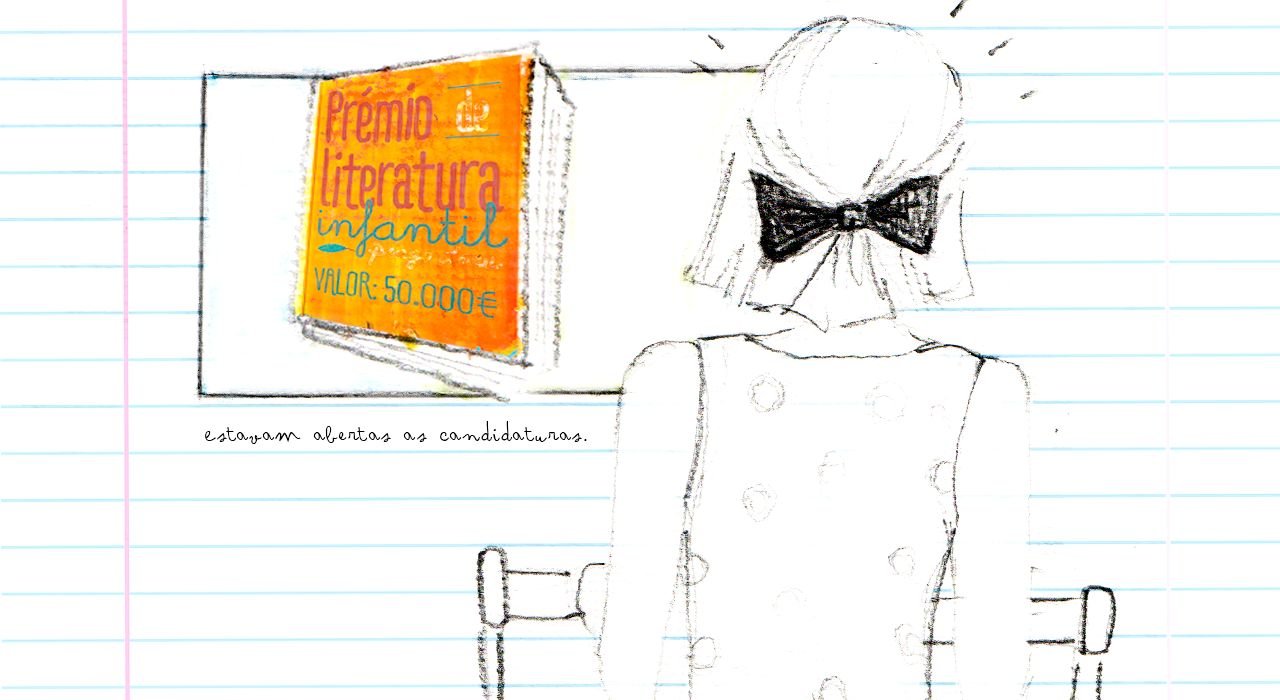 Prémio de
literatura
infantil
VALOR: 50.000€
estavam abertas as candidaturas.